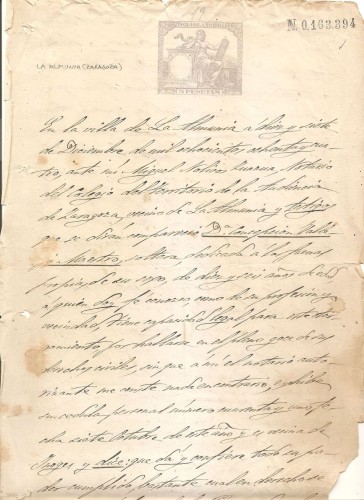 N. 0.163.394
LA ALMUNIA (ZARAGOZA)
En la villa de La Almunia á diez y siete
de Diciembre de mil ochocientos setenta y cua
tro, ante mi Miguel Notario
del Colegio del Territorio de la Audiencia
de Zaragoza, vecino de La Almunia y testigos
que se dirán compareció Dª Concepcion
y Maestro, soltera dedicada á las faenas
propias de su sexo, de diez y seis años de edad
á quien doy fe conozco como de su profesion y
vecindad. Tiene capacidad legal para este otor
gamiento por hallarse en el pleno goce de sus
derechos civiles, sin que á mi el notario auto
rizante me conste nada en contrario, exhibe
su cedula personal número cuarenta y uno, fe
cha siete Octubre de este año y es vecina de
y dice: que dá y confiere todo su po
der cumplido, bastante cual en derecho se